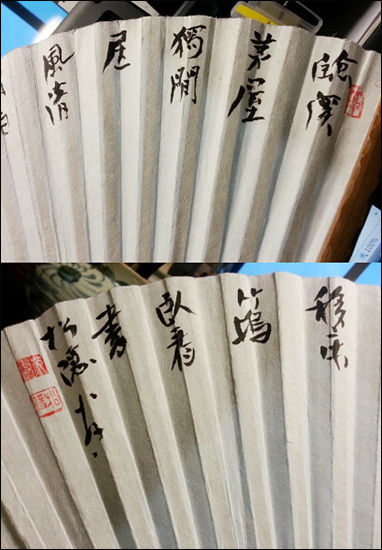 臨溪
茅屋
獨閒
居
風清
移床
竹塢
臥看
書
松隱